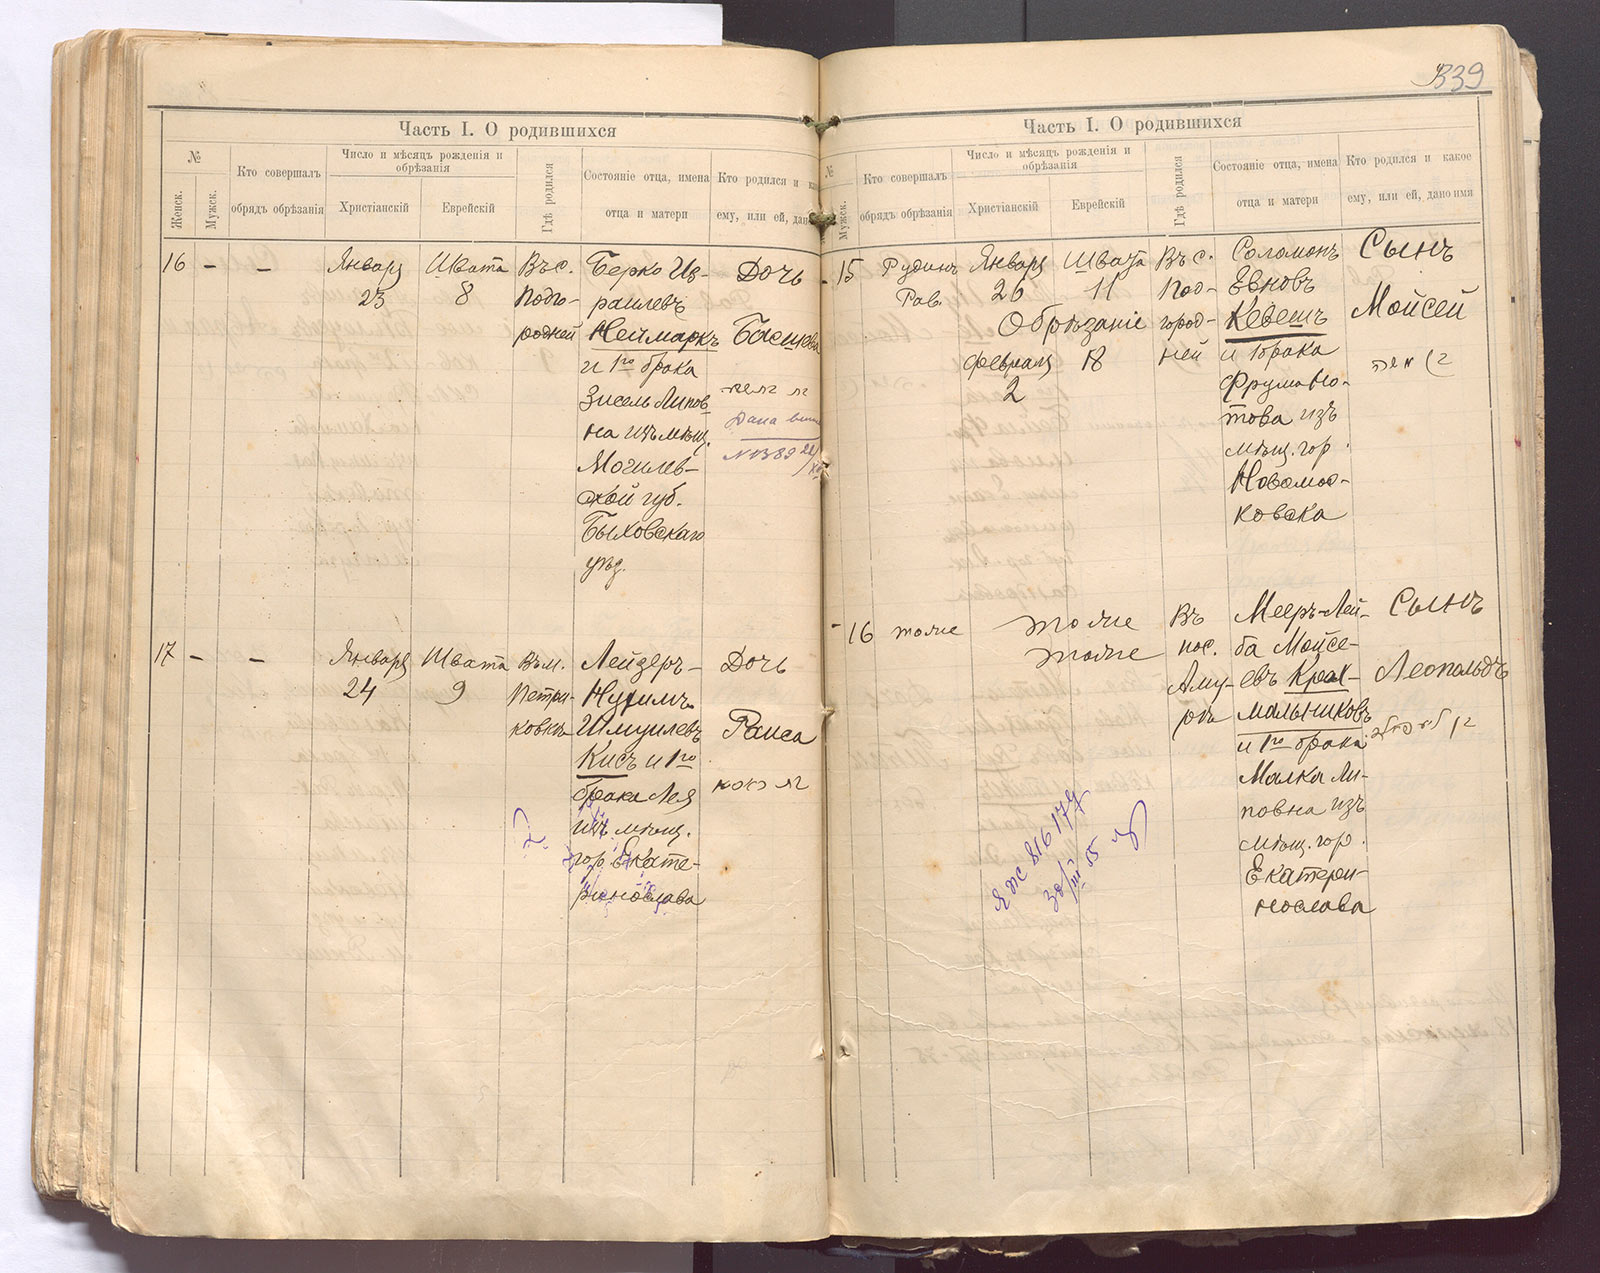 339
Часть I. О родившихся
№
Женск.
Мужск.
Кто совершалъ
обрядъ обрѣзанія
Число и мѣсяцъ рожденія и
обрѣзанія
Христіанскій
Еврейскій
Гдѣ родился
Состояніе отца, имена
отца и матери
Кто родился и како
ему, или ей, дано
16 – –
Января
23
Швата
8
Въ с.
Подго-
родней
Берко Из-
раилевъ
Неймаркъ
и 1го брака
Зисель Липов
на изъ мѣщ.
Могилев-
ской губ.
Быховскаго
уѣз.
Дочь
Дана
№ 1389
17 – –
Января
24
Швата
9
Въ м.
Петри-
ковкѣ
Лейзеръ-
Нухимъ
Шмуилевъ
Кисъ и 1го
брака Лея
изъ мѣщ.
гор Екате-
ринослава
Дочь
Раиса
Часть I. О родившихся
№
Мужск.
Кто совершалъ
обрядъ обрѣзанія
Число и мѣсяцъ рожденія и
обрѣзанія
Христіанскій
Еврейскій
Гдѣ родился
Состояніе отца, имена
отца и матери
Кто родился и какое
ему, или ей, дано имя
15
Рудинъ
Рав.
Января
26
Швата
11
Обрѣзаніе
Февраля
2
18
Въ с.
Под-
город-
ней
Соломонъ
Евновъ
Кевешъ
и 1 брака
Фрума
това изъ
мѣщ. гор.
Новомос-
ковска
Сынъ
Мойсей
16
тоже
тоже
тоже
Въ
пос.
Аму-
рѣ
Мееръ-Лей-
ба Мойсе-
евъ Крах-
мальниковъ
и 1го брака
Малка Ли-
повна изъ
мѣщ. гор.
Екатери-
нослава
Сынъ
Леопольдъ